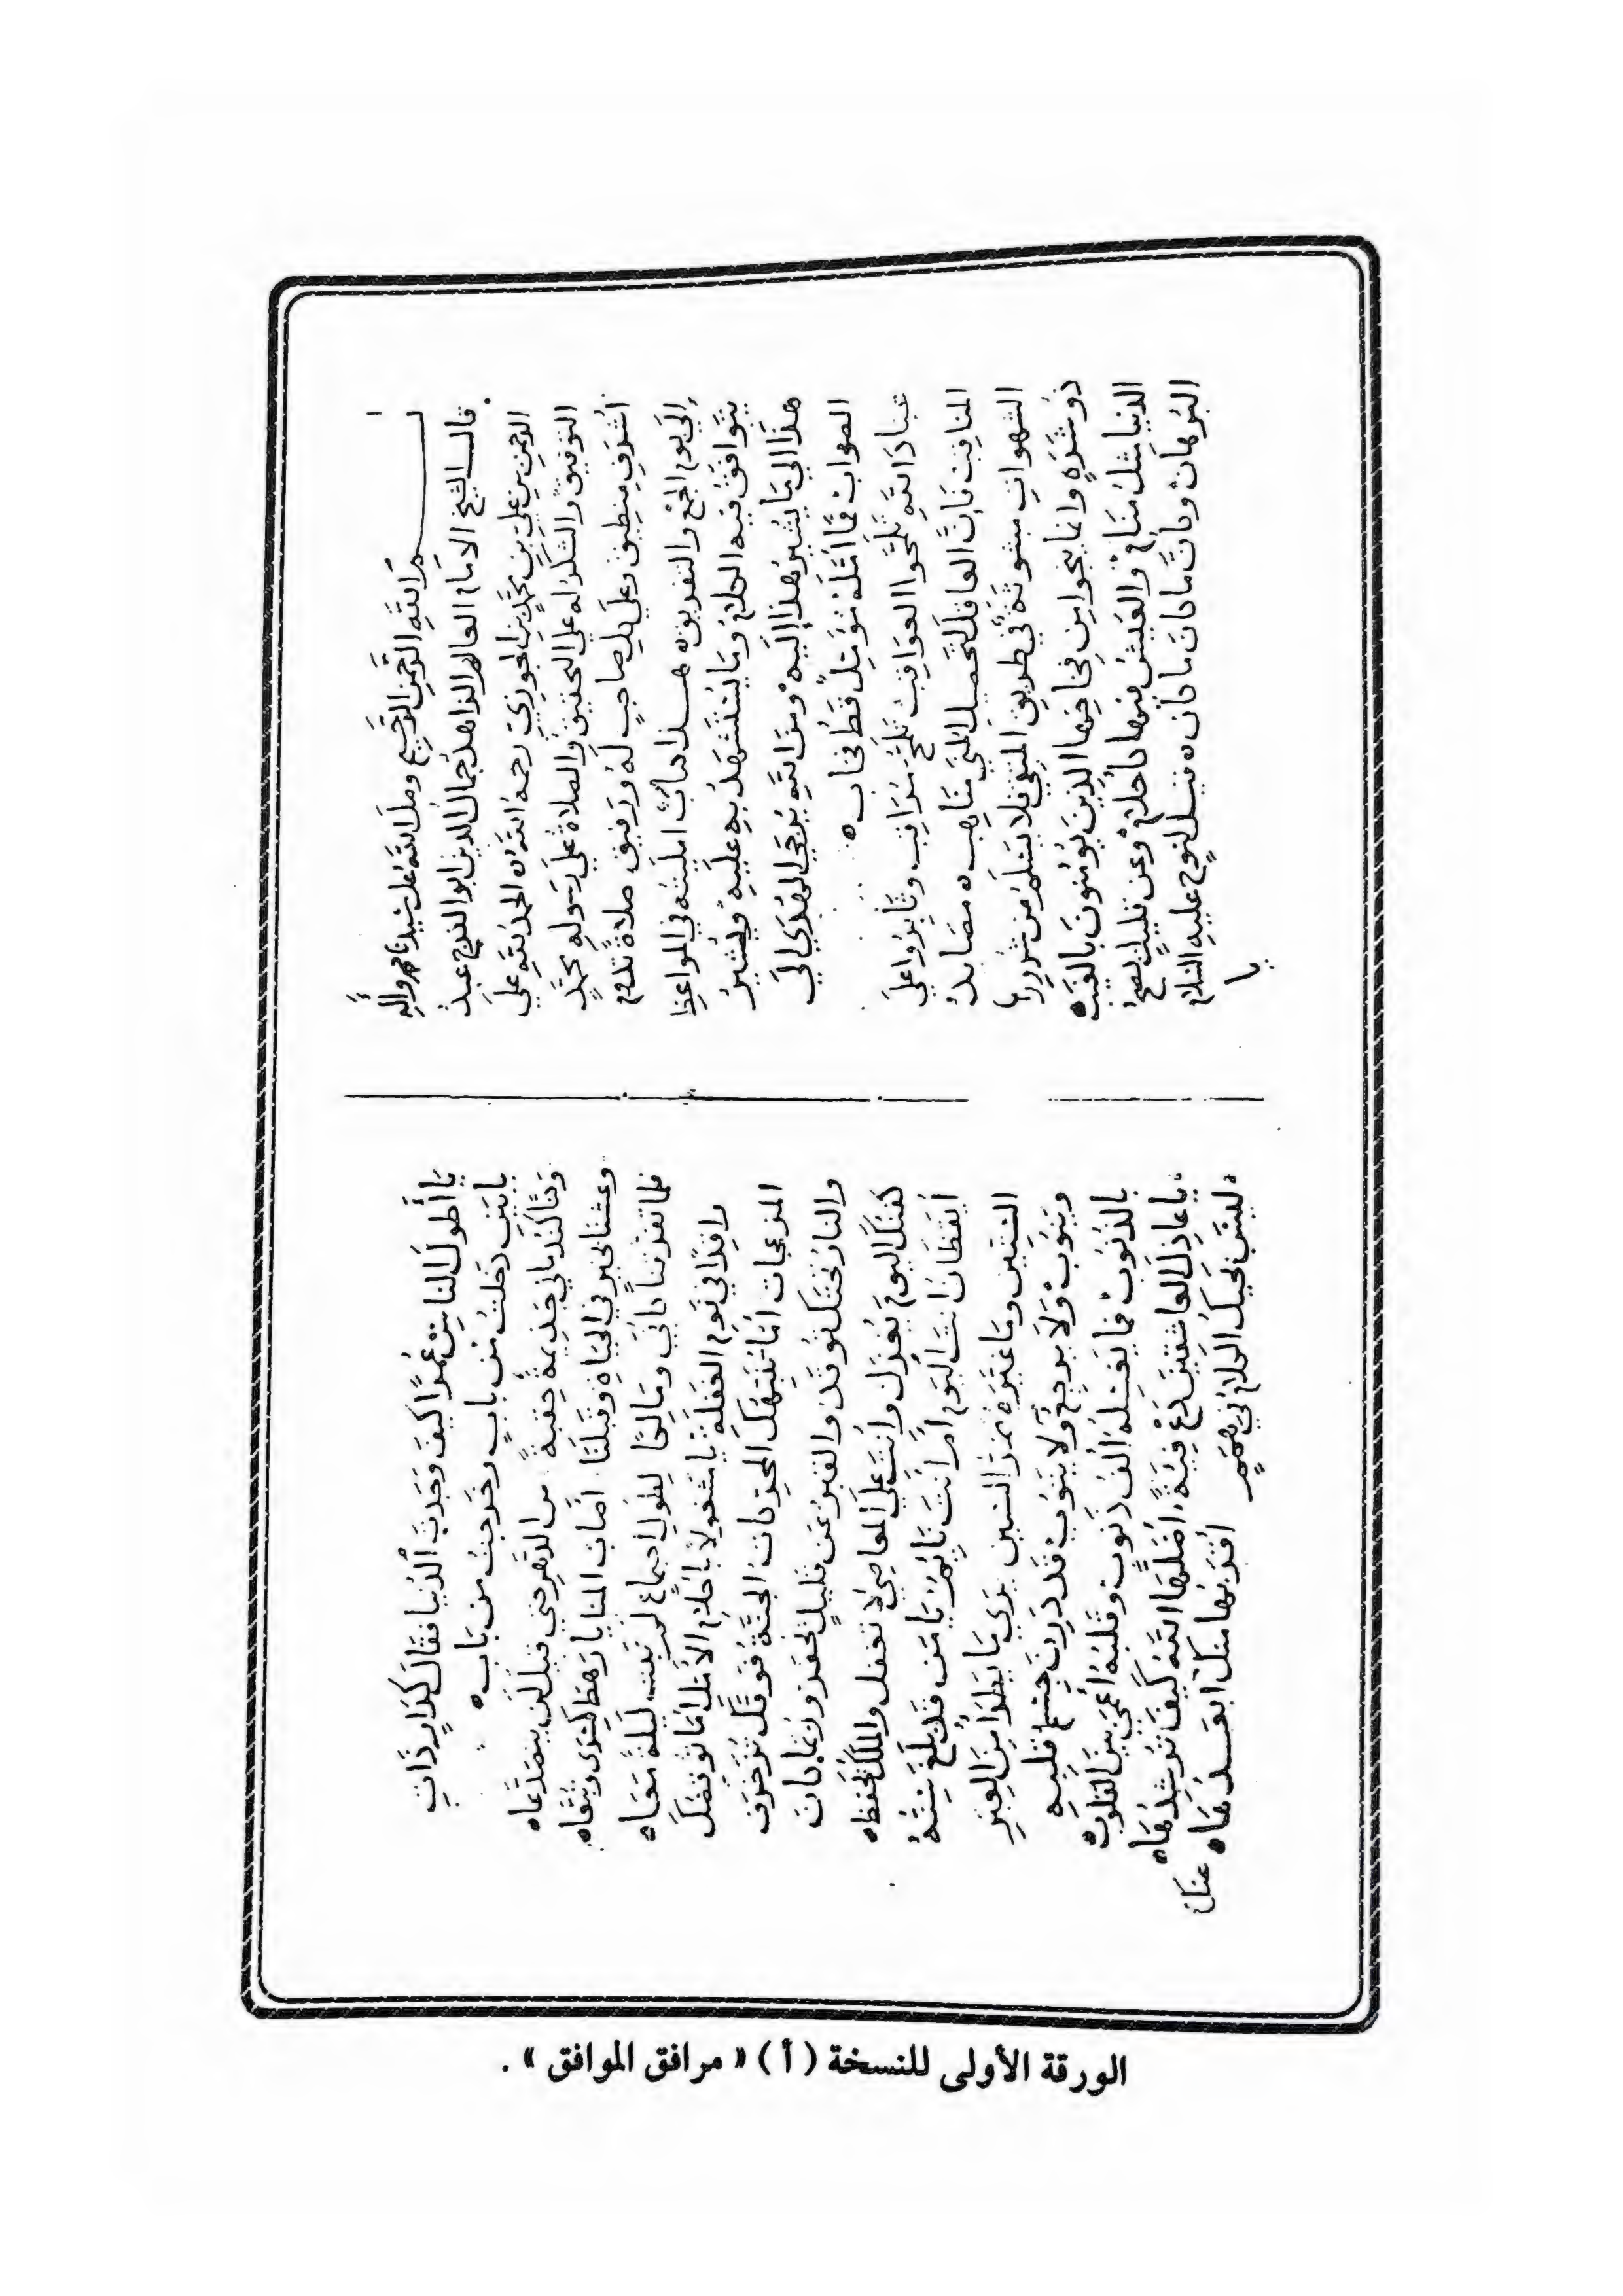 بسم الله الرحمن الرحيم وصل الله على سيدنا محمد وآله
قال الشيخ الامام العالم الزاهد جمال الدين ابو الفرج عبد
الرحمن بن علي بن محمد بن الجوزي رحمه الله ه الحمد لله علي
التوفيق والشكر له علي التحقيق والصلاة على رسوله محمد
أشرف منطيق وعلي كل صاحب له ورفيق صلاة تدوم
إلى يوم الجمع والتفريق ه هذا كتاب امليته في المواعظ
يتوافق فيه الكلام وما يستشهد به عليه ويشير
هذا الي ما يشير هذا إليه ومن الله يرجى الهدي الي
الصواب فما أمله مؤمل قط فخاب ه
عباد الله تلمحوا العواقب تلمح مراقب وثابروا علي
المناقب فان العاقل لتحصيل المنى مناهب ه مصايد
الشهوات مبثوثة في طريق المتقي فلا يسلم من شرر
ذو شره وانما ينجوا من فخاخها الذين يؤمنون بالغيب ه
الدنيا مثل منام والعيش فيها كأحلام وعن قليل يصح
البرهان وكأن ما كان ما كان ه قيل لنوح عليه السلام
يا
يا أطول الناس عمرا كيف وجدت الدنيا فقال كدار ذات
بابين دخلت من باب وخرجت من باب ه
وكنا كندماني جذيمة حقبة من الدهر حتي قيل لن يتصدعاه
وعشنا بخير في الحياة وقبلنا اصاب المنايا رهط كسرى وتبعاه
فلما تفرقنا كأني ومالكا لطول اجتماع لم نبت ليلة معاه
راقدا في نوم الغفلة يا مشغولا بأحلام الأمل أما توقظك
المزعجات أما تنبهك المحركات الجنة فوقك تزخرف
والنار تحتك توقد والقبر عن قليل يحفر وربما كان
كفنك اليوم يغزل وأنت على المعاصي لا تغفل والملك يحفظه
أيقظان انت اليوم أم أنت نائم يا من قد بلغ سنه
الستين وما غيره مر السنين يرى ما يطرأ من العبر
ويتوب ولا يرجع ولا يتوب قد درب جسم قلبه
بالذنوب فما يغسله ألف ذنوب وقلبه أعمى بين القلوب
يا عاذل العاشقين دع فئة أضلها الله كيف ترشدها ه
ليس يحيك الكلام في همم أقربها منك ابعدها ه
عنك
الورقة الأولى للنسخة ( أ ) « مرافق الموافق » .